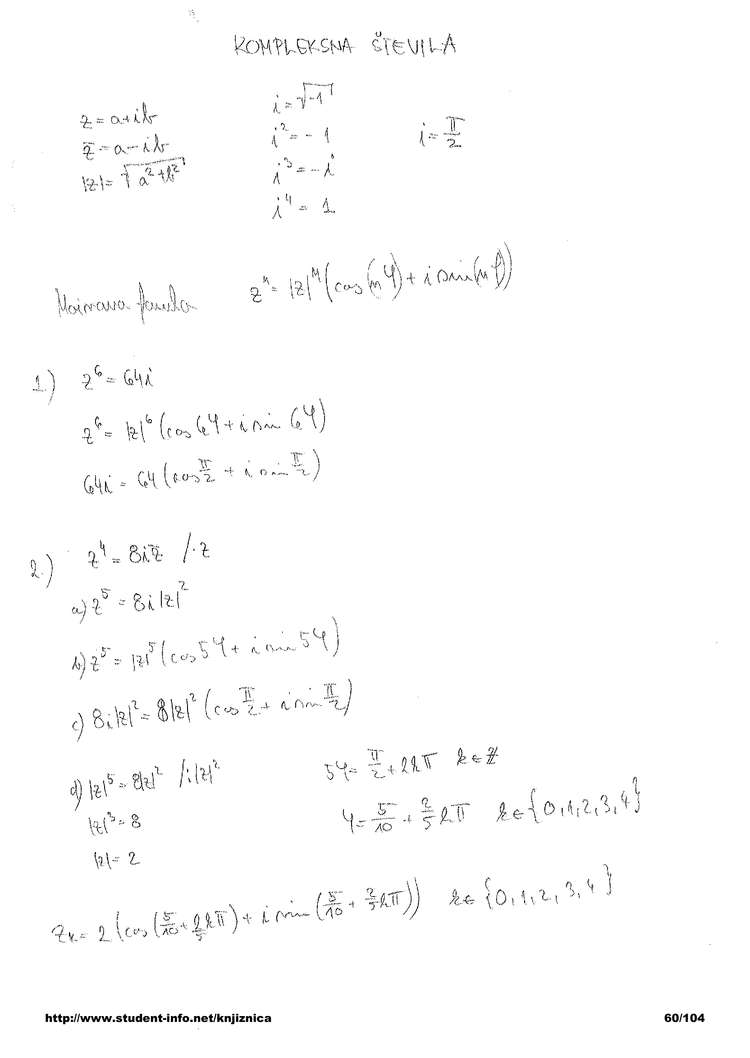 KOMPLEKSNA ŠTEVILA
z = a+ib
z̄ = a-ib
|z| = √(a²+b²)
i = √-1
i² = -1
i³ = -i
i⁴ = 1
i = π/2
Moirava formula zⁿ = |z|ⁿ (cos(nφ) + i sin(nφ))
1) z⁶ = 64i
z⁶ = |z|⁶ (cos 6φ + i sin 6φ)
64i = 64 (cos π/2 + i sin π/2)
2.) z⁴ = 8i z̄ /·z
a) z⁵ = 8i |z|²
b) z⁵ = |z|⁵ (cos 5φ + i sin 5φ)
c) 8i|z|² = 8|z|² (cos π/2 + i sin π/2)
d) |z|⁵ = 8|z|² /:|z|²
|z|³ = 8
|z| = 2
5φ = π/2 + 2kπ k∈ℤ
φ = 5/10 + 2/5 kπ k∈{0,1,2,3,4}
zₖ = 2 (cos(5/10 + 2/5 kπ) + i sin(5/10 + 2/5 kπ)) k∈{0,1,2,3,4}
http://www.student-info.net/knjiznica 60/104